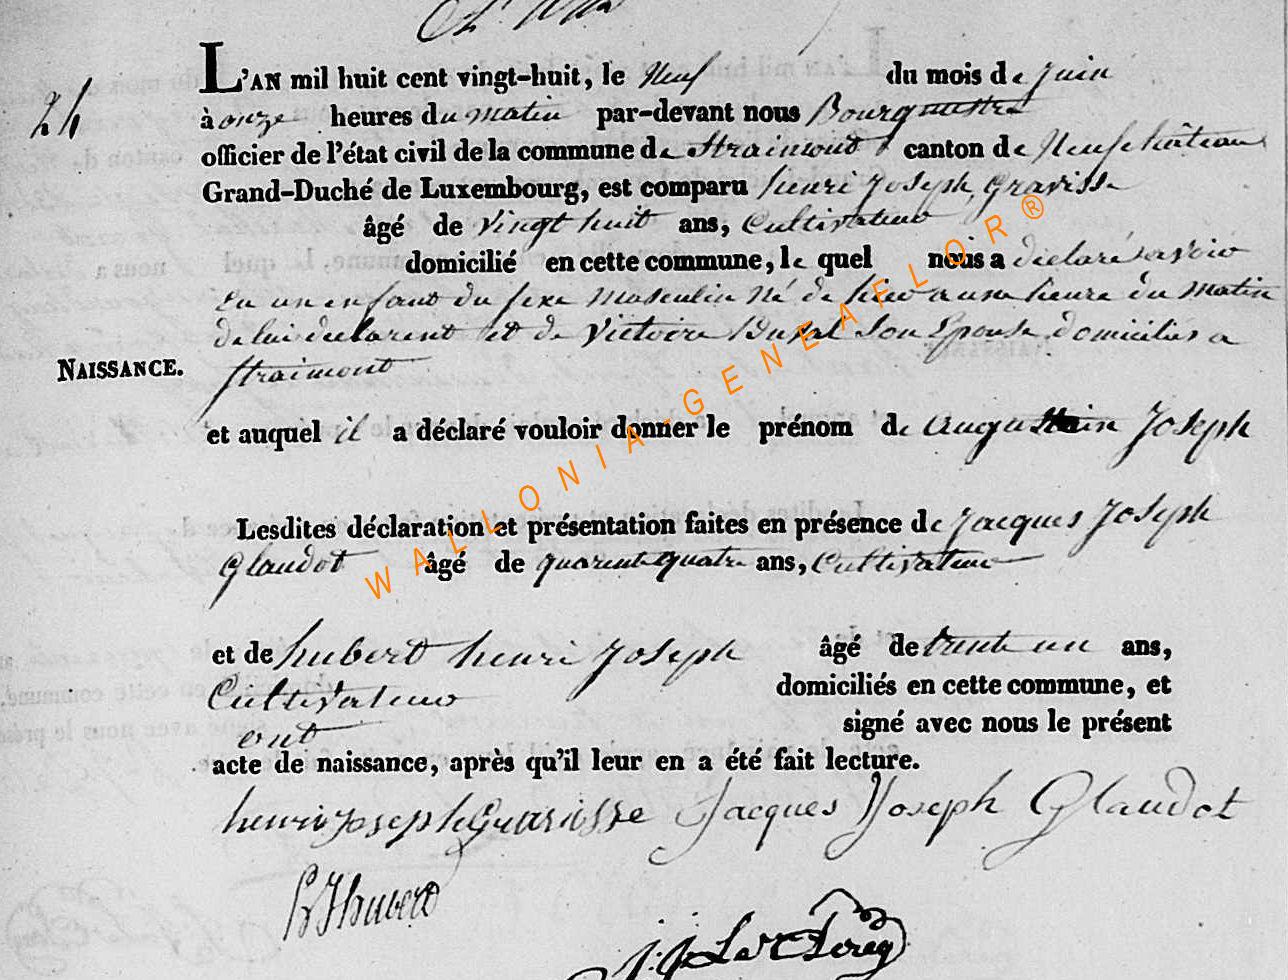 L'AN mil huit cent vingt-huit, le Neuf du mois de Juin
24
à onze heures du matin par-devant nous Bourgmestre
officier de l'état civil de la commune de Straimont canton de Neufchâteau
Grand-Duché de Luxembourg, est comparu henri Joseph Gravisse
âgé de vingt huit ans, Cultivateur
domicilié en cette commune, le quel nous a déclaré avoir
eu un enfant du sexe Masculin Né de hier a une heure du Matin
de lui declarent et de Victoire Duxal Son Epouse domiciliés a
NAISSANCE. Straimont
et auquel il a déclaré vouloir donner le prénom de Augustin Joseph
Lesdites déclaration et présentation faites en présence de Jacques Joseph
Glaudot âgé de quarente quatre ans, Cultivateur
et de hubert henri Joseph âgé de trente un ans,
Cultivateur domiciliés en cette commune, et
ont signé avec nous le présent
acte de naissance, après qu'il leur en a été fait lecture.
henri joseph Gravisse Jacques Joseph Glaudot
hJhubert
WALLONIA-GENEAFLOR®